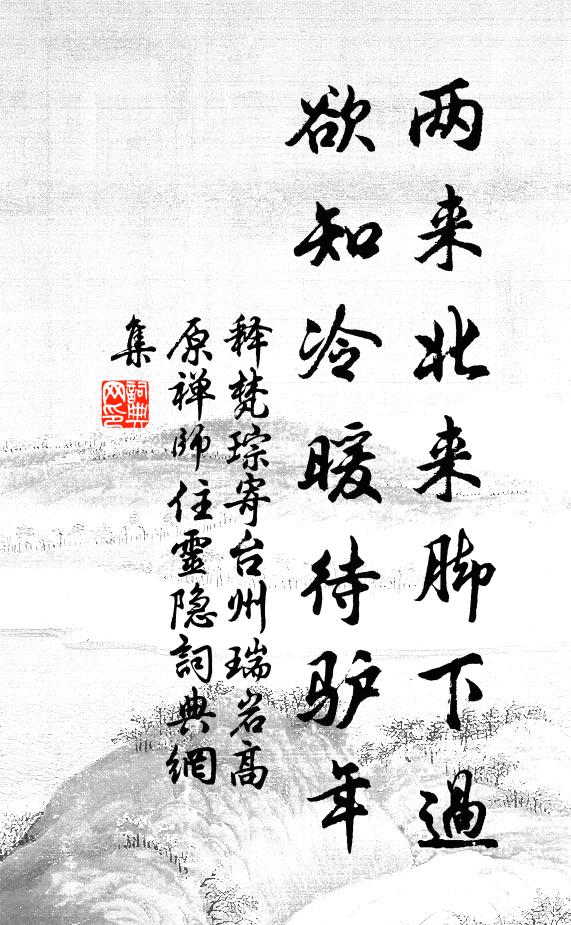 两来北来脚下過
欲知冷暖待驴年
释梵琮寄台州瑞岩高
原禅师住靈隐詞典網
集
詞典
网印